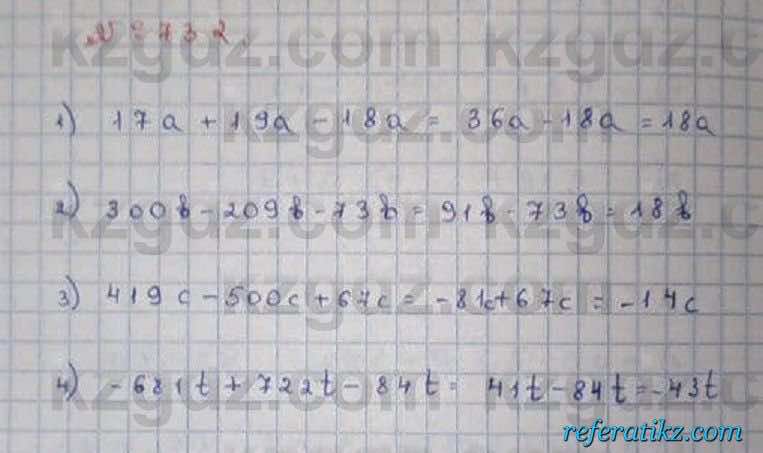 № 732.
1) 17a + 19a - 18a = 36a - 18a = 18a
2) 300b - 209b - 73b = 91b - 73b = 18b
3) 419c - 500c + 67c = -81c + 67c = -14c
4) -681t + 722t - 84t = 41t - 84t = -43t
referatikz.com
kzguz.com